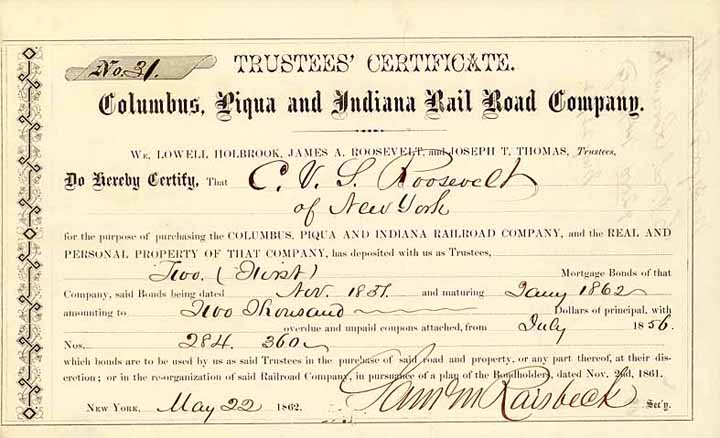 No. 31.
TRUSTEES' CERTIFICATE.
Columbus, Piqua and Indiana Rail Road Company.
WE, LOWELL HOLBROOK, JAMES A. ROOSEVELT, and JOSEPH T. THOMAS, Trustees,
Do Hereby Certify, That C. V. S. Roosevelt
of New York
for the purpose of purchasing the COLUMBUS, PIQUA AND INDIANA RAILROAD COMPANY, and the REAL AND
PERSONAL PROPERTY OF THAT COMPANY, has deposited with us as Trustees,
Two. (First) Mortgage Bonds of that
Company, said Bonds being dated Nov. 1851. and maturing Jany 1862
amounting to Two Thousand Dollars of principal, with
overdue and unpaid coupons attached, from July 1856.
Nos. 284. 360
which bonds are to be used by us as said Trustees in the purchase of said road and property, or any part thereof, at their dis-
cretion; or in the re-organization of said Railroad Company, in pursuance of a plan of the Bondholders, dated Nov. 2nd, 1861.
NEW YORK, May 22 1862. Saml M Raisbeck Sec'y.